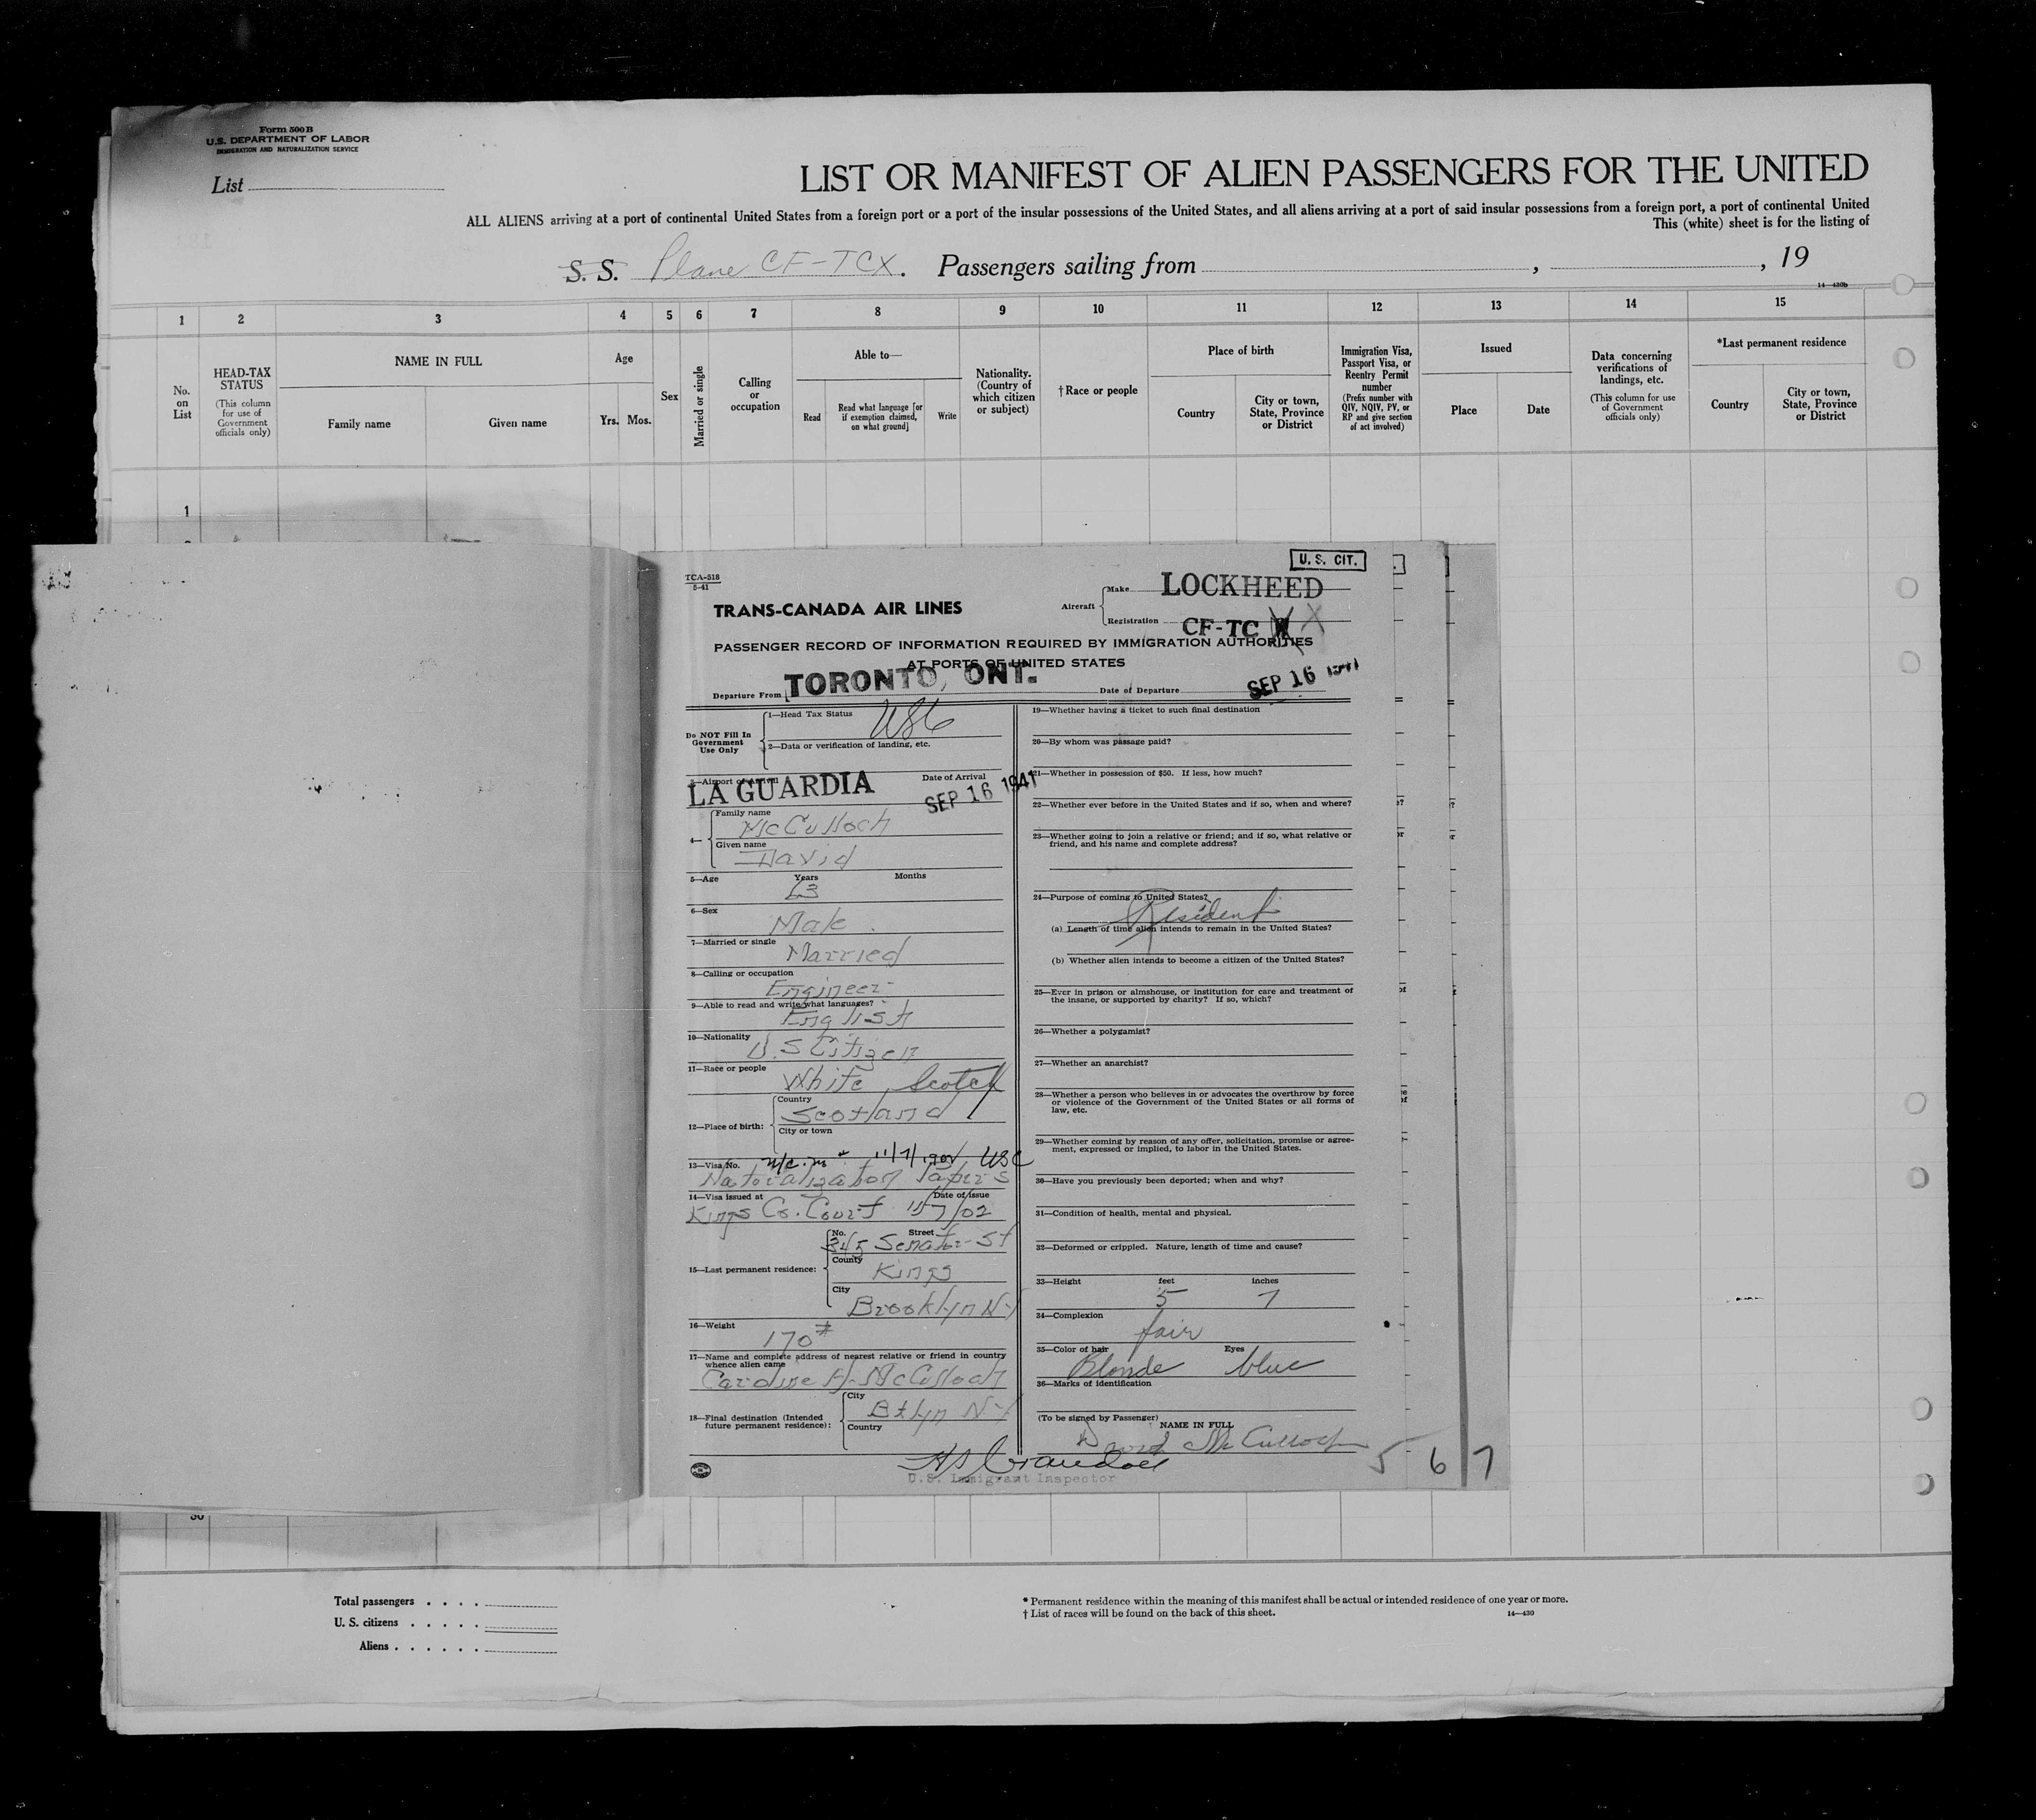 Form 500 B
U.S. DEPARTMENT OF LABOR
IMMIGRATION AND NATURALIZATION SERVICE
List
LIST OR MANIFEST OF ALIEN PASSENGERS FOR THE UNITED
ALL ALIENS arriving at a port of continental United States from a foreign port or a port of the insular possessions of the United States, and all aliens arriving at a port of said insular possessions from a foreign port, a port of continental United
This (white) sheet is for the listing of
S. S. Plane CF-TCX. Passengers sailing from , , 19
14—430b
1 2 3 4 5 6 7 8 9 10 11 12 13 14 15
No. on List
HEAD-TAX STATUS (This column for use of Government officials only)
NAME IN FULL
Family name Given name
Age
Yrs. Mos.
Sex
Married or single
Calling or occupation
Able to—
Read
Read what language [or if exemption claimed, on what ground]
Write
Nationality. (Country of which citizen or subject)
†Race or people
Place of birth
Country
City or town, State, Province or District
Immigration Visa, Passport Visa, or Reentry Permit number (Prefix number with QIV, NQIV, PV, or RP and give section of act involved)
Issued
Place Date
Data concerning verifications of landings, etc. (This column for use of Government officials only)
*Last permanent residence
Country
City or town, State, Province or District
1
U. S. CIT.
TCA-518
5-41
TRANS-CANADA AIR LINES
Aircraft
Make LOCKHEED
Registration CF-TC X
PASSENGER RECORD OF INFORMATION REQUIRED BY IMMIGRATION AUTHORITIES
AT PORTS OF UNITED STATES
Departure From TORONTO, ONT. Date of Departure SEP 16 1941
Do NOT Fill In Government Use Only
1—Head Tax Status
2—Data or verification of landing, etc.
3—Airport of Arrival Date of Arrival
LA GUARDIA SEP 16 1941
4—
Family name
McCulloch
Given name
David
5—Age Years Months
63
6—Sex
Male
7—Married or single
Married
8—Calling or occupation
Engineer
9—Able to read and write what languages?
English
10—Nationality
U.S Citizen
11—Race or people
White Scotch
12—Place of birth:
Country
Scotland
City or town
13—Visa No. N/C. 11/7/1902 USC
Naturalization Papers
14—Visa issued at Date of issue
Kings Co. Court 11/7/02
15—Last permanent residence:
No. Street
345 Senator St
County
Kings
City
Brooklyn NY
16—Weight
170#
17—Name and complete address of nearest relative or friend in country
whence alien came
Caroline A. McCulloch
18—Final destination (Intended
future permanent residence):
City
Bklyn NY
Country
U.S. Immigrant Inspector
19—Whether having a ticket to such final destination
20—By whom was passage paid?
21—Whether in possession of $50. If less, how much?
22—Whether ever before in the United States and if so, when and where?
23—Whether going to join a relative or friend; and if so, what relative or
friend, and his name and complete address?
24—Purpose of coming to United States?
Resident
(a) Length of time alien intends to remain in the United States?
(b) Whether alien intends to become a citizen of the United States?
25—Ever in prison or almshouse, or institution for care and treatment of
the insane, or supported by charity? If so, which?
26—Whether a polygamist?
27—Whether an anarchist?
28—Whether a person who believes in or advocates the overthrow by force
or violence of the Government of the United States or all forms of
law, etc.
29—Whether coming by reason of any offer, solicitation, promise or agree-
ment, expressed or implied, to labor in the United States.
30—Have you previously been deported; when and why?
31—Condition of health, mental and physical.
32—Deformed or crippled. Nature, length of time and cause?
33—Height feet inches
5 7
34—Complexion
fair
35—Color of hair Eyes
Blonde blue
36—Marks of identification
(To be signed by Passenger)
NAME IN FULL
David McCulloch
5 6 7
30
Total passengers
U. S. citizens
Aliens
* Permanent residence within the meaning of this manifest shall be actual or intended residence of one year or more.
† List of races will be found on the back of this sheet. 14—430